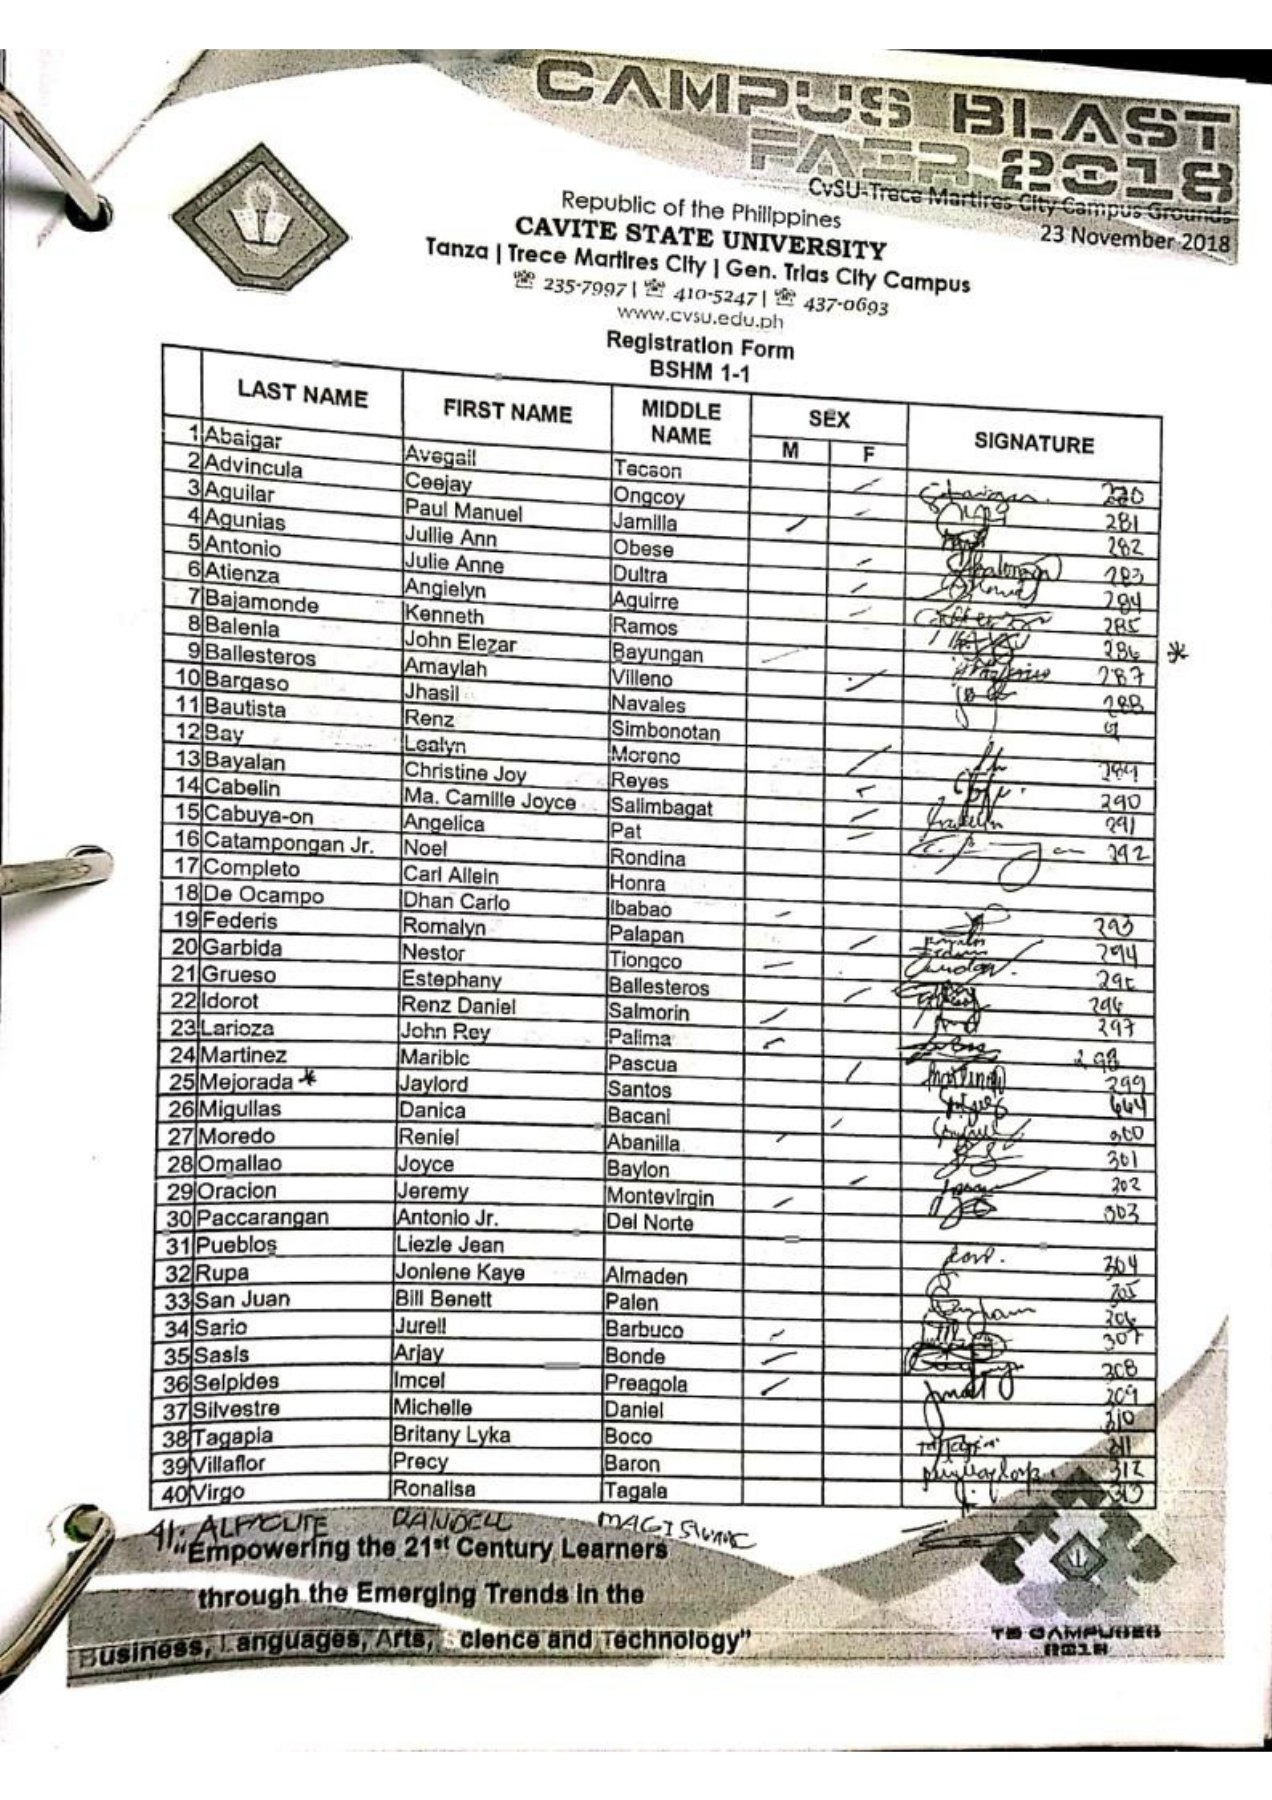 CAMPUS BLAST
FAIR 2018
CvSU-Trece Martires City Campus Grounds
23 November 2018
Republic of the Philippines
CAVITE STATE UNIVERSITY
Tanza | Trece Martires City | Gen. Trias City Campus
☏ 235-7997 | ☏ 410-5247 | ☏ 437-0693
www.cvsu.edu.ph
Registration Form
BSHM 1-1
LAST NAME FIRST NAME MIDDLE NAME SEX SIGNATURE
M F
1 Abaigar Avegail Tecson 220
2 Advincula Ceejay Ongcoy 281
3 Aguilar Paul Manuel Jamilla 282
4 Agunias Jullie Ann Obese 283
5 Antonio Julie Anne Dultra 284
6 Atienza Angielyn Aguirre 285
7 Bajamonde Kenneth Ramos 286 *
8 Balenia John Elezar Bayungan 287
9 Ballesteros Amaylah Villeno 288
10 Bargaso Jhasil Navales
11 Bautista Renz Simbonotan
12 Bay Lealyn Moreno 289
13 Bayalan Christine Joy Reyes 290
14 Cabelin Ma. Camille Joyce Salimbagat 291
15 Cabuya-on Angelica Pat 292
16 Catampongan Jr. Noel Rondina
17 Completo Carl Allein Honra
18 De Ocampo Dhan Carlo Ibabao 293
19 Federis Romalyn Palapan 294
20 Garbida Nestor Tiongco 295
21 Grueso Estephany Ballesteros 296
22 Idorot Renz Daniel Salmorin 297
23 Larioza John Rey Palima 298
24 Martinez Maribic Pascua 299
25 Mejorada * Jaylord Santos 664
26 Migullas Danica Bacani 300
27 Moredo Reniel Abanilla 301
28 Omallao Joyce Baylon 302
29 Oracion Jeremy Montevirgin 303
30 Paccarangan Antonio Jr. Del Norte
31 Pueblos Liezle Jean 304
32 Rupa Jonlene Kaye Almaden 305
33 San Juan Bill Benett Palen 306
34 Sario Jurell Barbuco 307
35 Sasis Arjay Bonde 308
36 Selpides Imcel Preagola 309
37 Silvestre Michelle Daniel 310
38 Tagapia Britany Lyka Boco 311
39 Villaflor Precy Baron 312
40 Virgo Ronalisa Tagala 313
41. ALFACUTE RANDELL
"Empowering the 21st Century Learners
through the Emerging Trends in the
Business, Languages, Arts, Science and Technology"
T3 CAMPUSES
2018